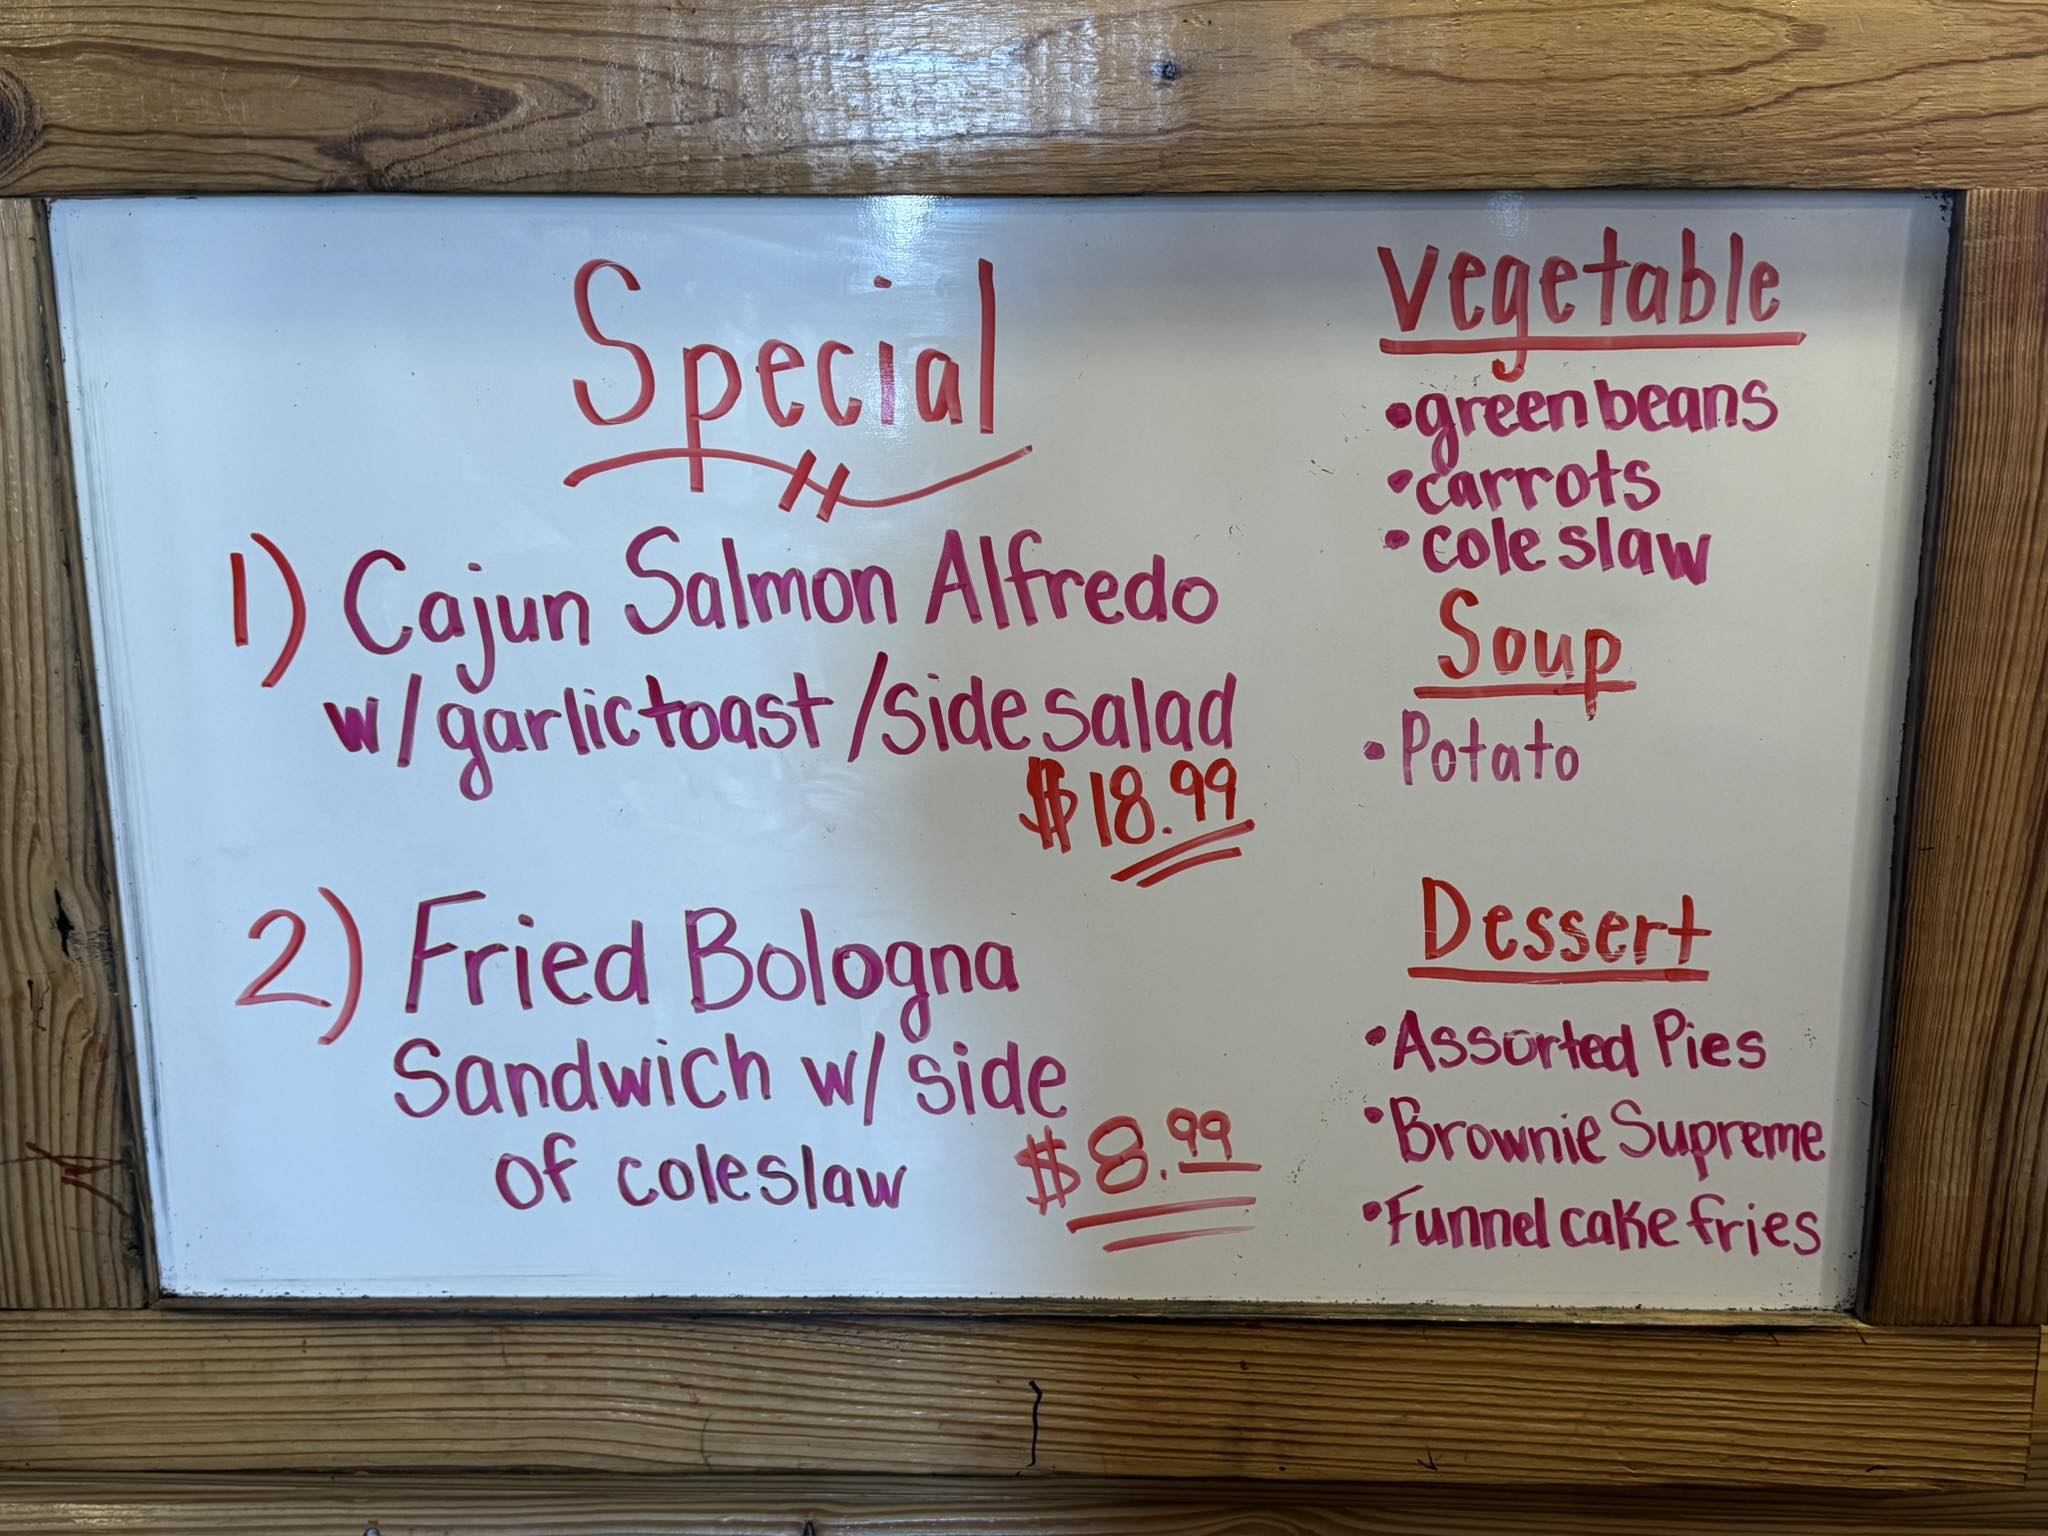 Special
1) Cajun Salmon Alfredo
w/garlic toast/side salad
$18.99
2) Fried Bologna
Sandwich w/ side
of coleslaw $8.99
Vegetable
• green beans
• carrots
• cole slaw
Soup
• Potato
Dessert
• Assorted Pies
• Brownie Supreme
• Funnel cake fries